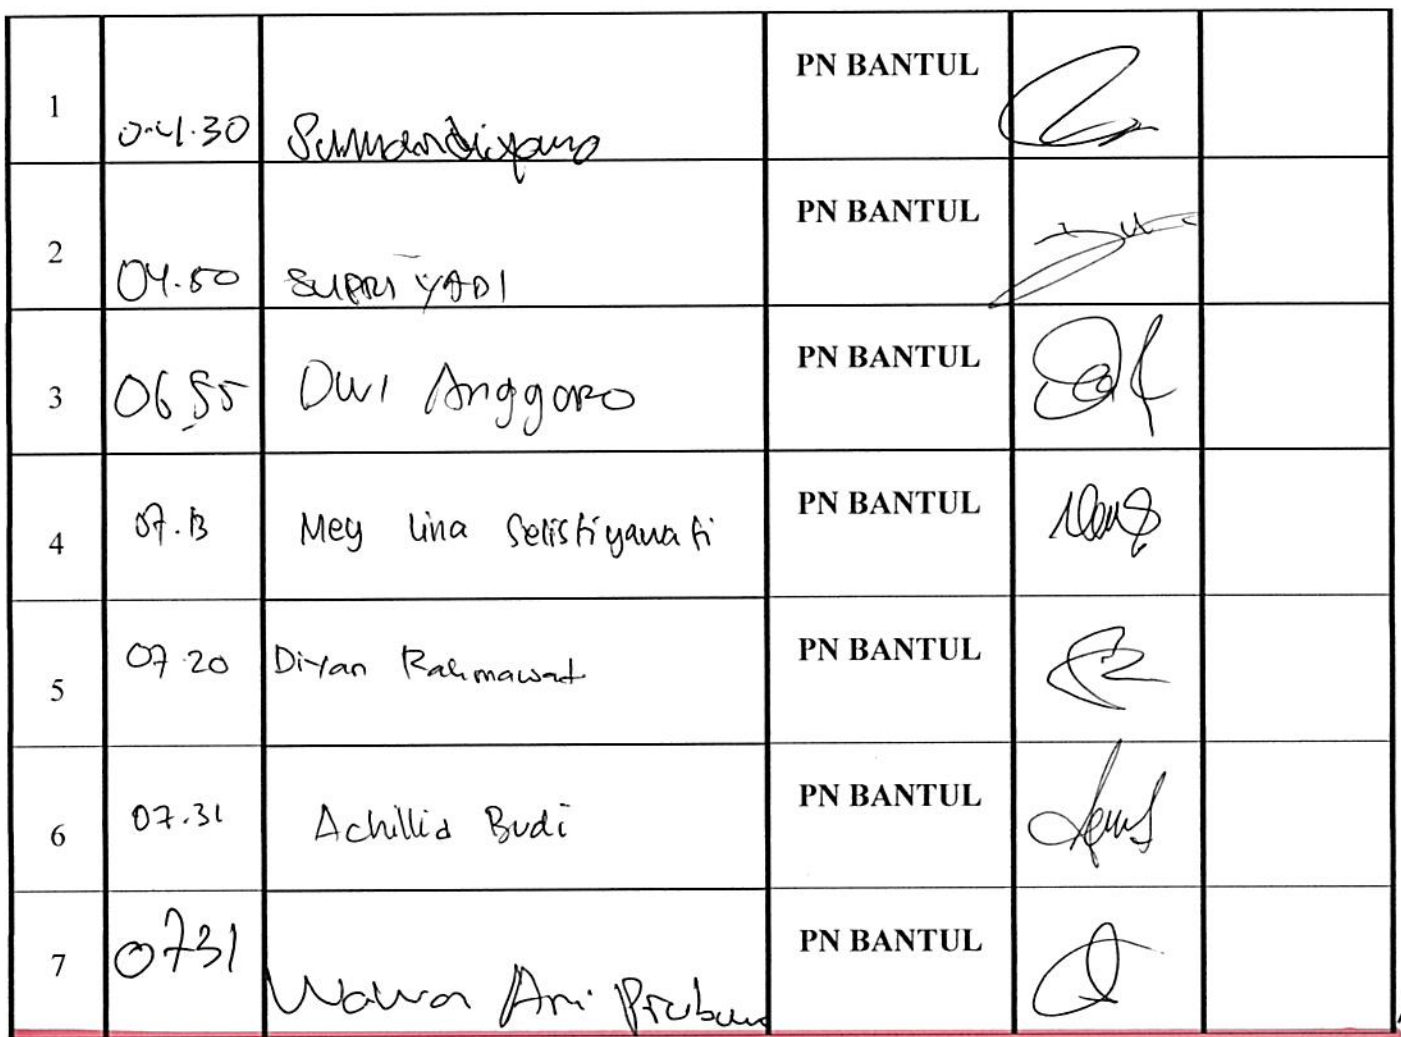 1 04.30 Sumardiyono PN BANTUL
2 04.50 SUPRIYADI PN BANTUL
3 06.55 Dwi Anggoro PN BANTUL
4 07.13 Mey Lina Selistiyawati PN BANTUL
5 07.20 Diyan Rahmawat PN BANTUL
6 07.31 Achillia Budi PN BANTUL
7 0731 Ari PN BANTUL